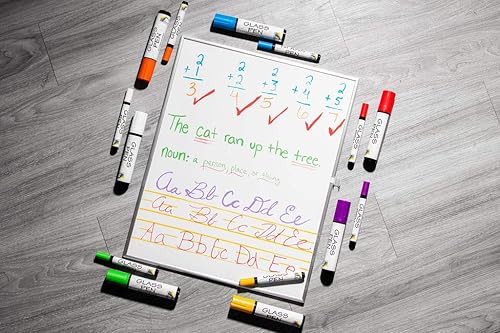 2 2 2 2 2
+1 +2 +3 +4 +5
3 4 5 6 7
The cat ran up the tree
noun: a person, place, or thing
Aa Bb Cc Dd Ee
Aa Bb Cc Dd Ee
Aa Bb Cc Dd Ee
GLASS PEN
GLASS PEN
GLASS PEN
GLASS PEN
GLASS PEN
GLASS PEN
GLASS PEN
GLASS PEN
GLASS PEN
GLASS PEN